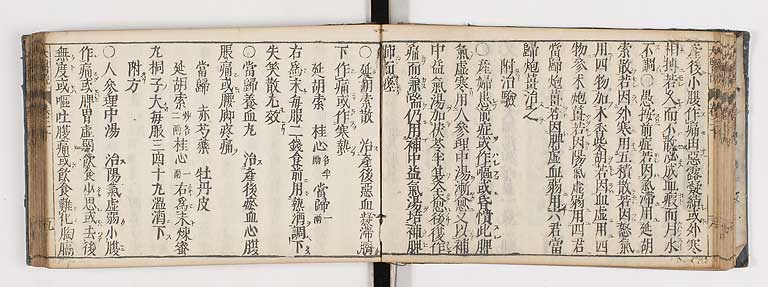 産後小腹作痛由惡露凝結或外寒
相搏若久而不散必成血瘕而月水
不調〇愚按前症若因氣滯用延胡
索散若因外寒用五積散若因怒氣
用四物加木香柴胡若因血虚用四
物參朮炮薑若因陽氣虚弱用四君
當歸炮薑若因脾虚血弱用六君當
歸炮薑治之
附治驗
〇一産婦患前症或作嘔或昏憒此脾
氣虚寒用人參理中湯漸愈又以補
中益氣湯加茯苓半夏全愈後復作
痛而兼喘仍用補中益氣湯培補脾
肺而痊
〇延胡索散 治産後惡血凝滯臍
下作痛或作寒熱
延胡索 桂心 當歸
右爲末每服二錢食前用熱酒調下
失笑散尤效
〇當歸養血丸 治産後瘀血心腹
脹痛或腰脚疼痛
當歸 赤芍藥 牡丹皮
延胡索 二兩 桂心 一兩 右爲末煉蜜
丸桐子大每服三四十丸溫酒下
附方
〇人參理中湯 治陽氣虚弱小腹
作痛或脾胃虚弱飲食少思或去後
無度或嘔吐腹痛或飲食難化胸膈